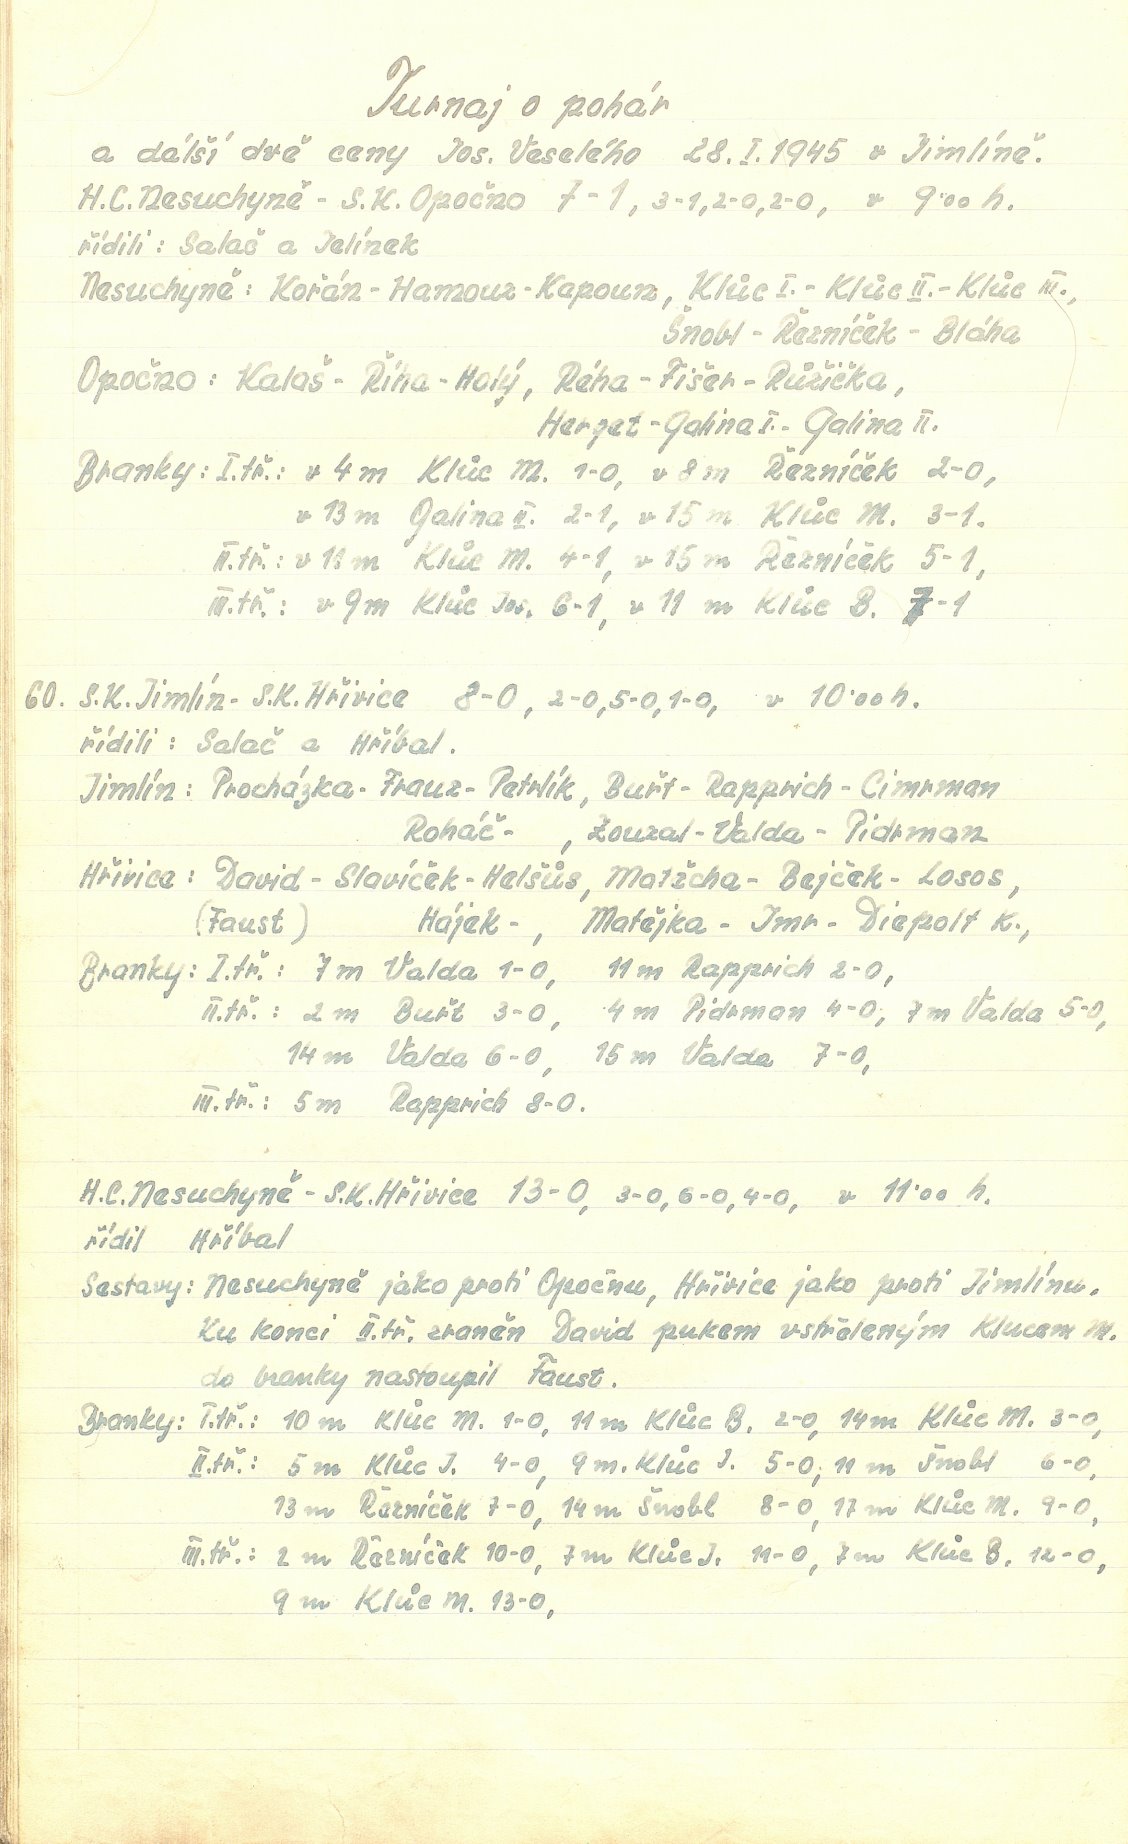 Turnaj o pohár
a dálší dvě ceny Jos. Veselého 28. I. 1945 v Jimlíně.
H.C. Nesuchyně - S.K. Opočno 7-1, 3-1, 2-0, 2-0, v 9·00 h.
řídili: Salač a Jelínek
Nesuchyně: Kořán - Hamouz - Kapoun, Klůc I. - Klůc II. - Klůc III.,
Šnobl - Řezníček - Bláha
Opočno: Kalaš - Říha - Holý, Réha - Fišer - Růžička,
Herget - Galina I. - Galina II.
Branky: I.tř.: v 4 m Klůc M. 1-0, v 8 m Řezníček 2-0,
v 13 m Galina II. 2-1, v 15 m Klůc M. 3-1.
II.tř.: v 11 m Klůc M. 4-1, v 15 m Řezníček 5-1,
III.tř.: v 9 m Klůc Jos. 6-1, v 11 m Klůc B. 7-1
60. S.K. Jimlín - S.K. Hřivice 8-0, 2-0, 5-0, 1-0, v 10·00 h.
řídili: Salač a Hříbal.
Jimlín: Procházka - Franz - Petrlík, Buřt - Rapprich - Cimrman
Roháč - , Zouzal - Valda - Pidrman
Hřivice: David - Slavíček - Helšůs, Matěcha - Bejček - Losos,
(Faust) Hájek - , Matějka - Imr - Diepolt K.,
Branky: I.tř.: 7 m Valda 1-0, 11 m Rapprich 2-0,
II.tř.: 2 m Buřt 3-0, 4 m Pidrman 4-0, 7 m Valda 5-0,
14 m Valda 6-0, 15 m Valda 7-0,
III.tř.: 5 m Rapprich 8-0.
H.C. Nesuchyně - S.K. Hřivice 13-0, 3-0, 6-0, 4-0, v 11·00 h.
řídil Hříbal
Sestavy: Nesuchyně jako proti Opočnu, Hřivice jako proti Jimlínu.
Ku konci II.tř. zraněn David pukem vstřeleným Klucem M.
do branky nastoupil Faust.
Branky: I.tř.: 10 m Klůc M. 1-0, 11 m Klůc B. 2-0, 14 m Klůc M. 3-0,
II.tř.: 5 m Klůc J. 4-0, 9 m. Klůc J. 5-0, 11 m Šnobl 6-0,
13 m Řezníček 7-0, 14 m Šnobl 8-0, 17 m Klůc M. 9-0,
III.tř.: 2 m Řezníček 10-0, 7 m Klůc J. 11-0, 7 m Klůc B. 12-0,
9 m Klůc M. 13-0,